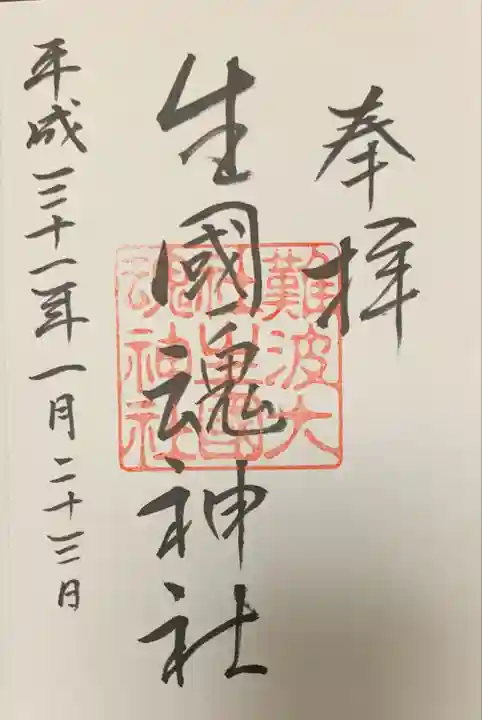 奉拝
生國魂神社
難波大
社生國
魂神社
平成三十一年一月二十三日